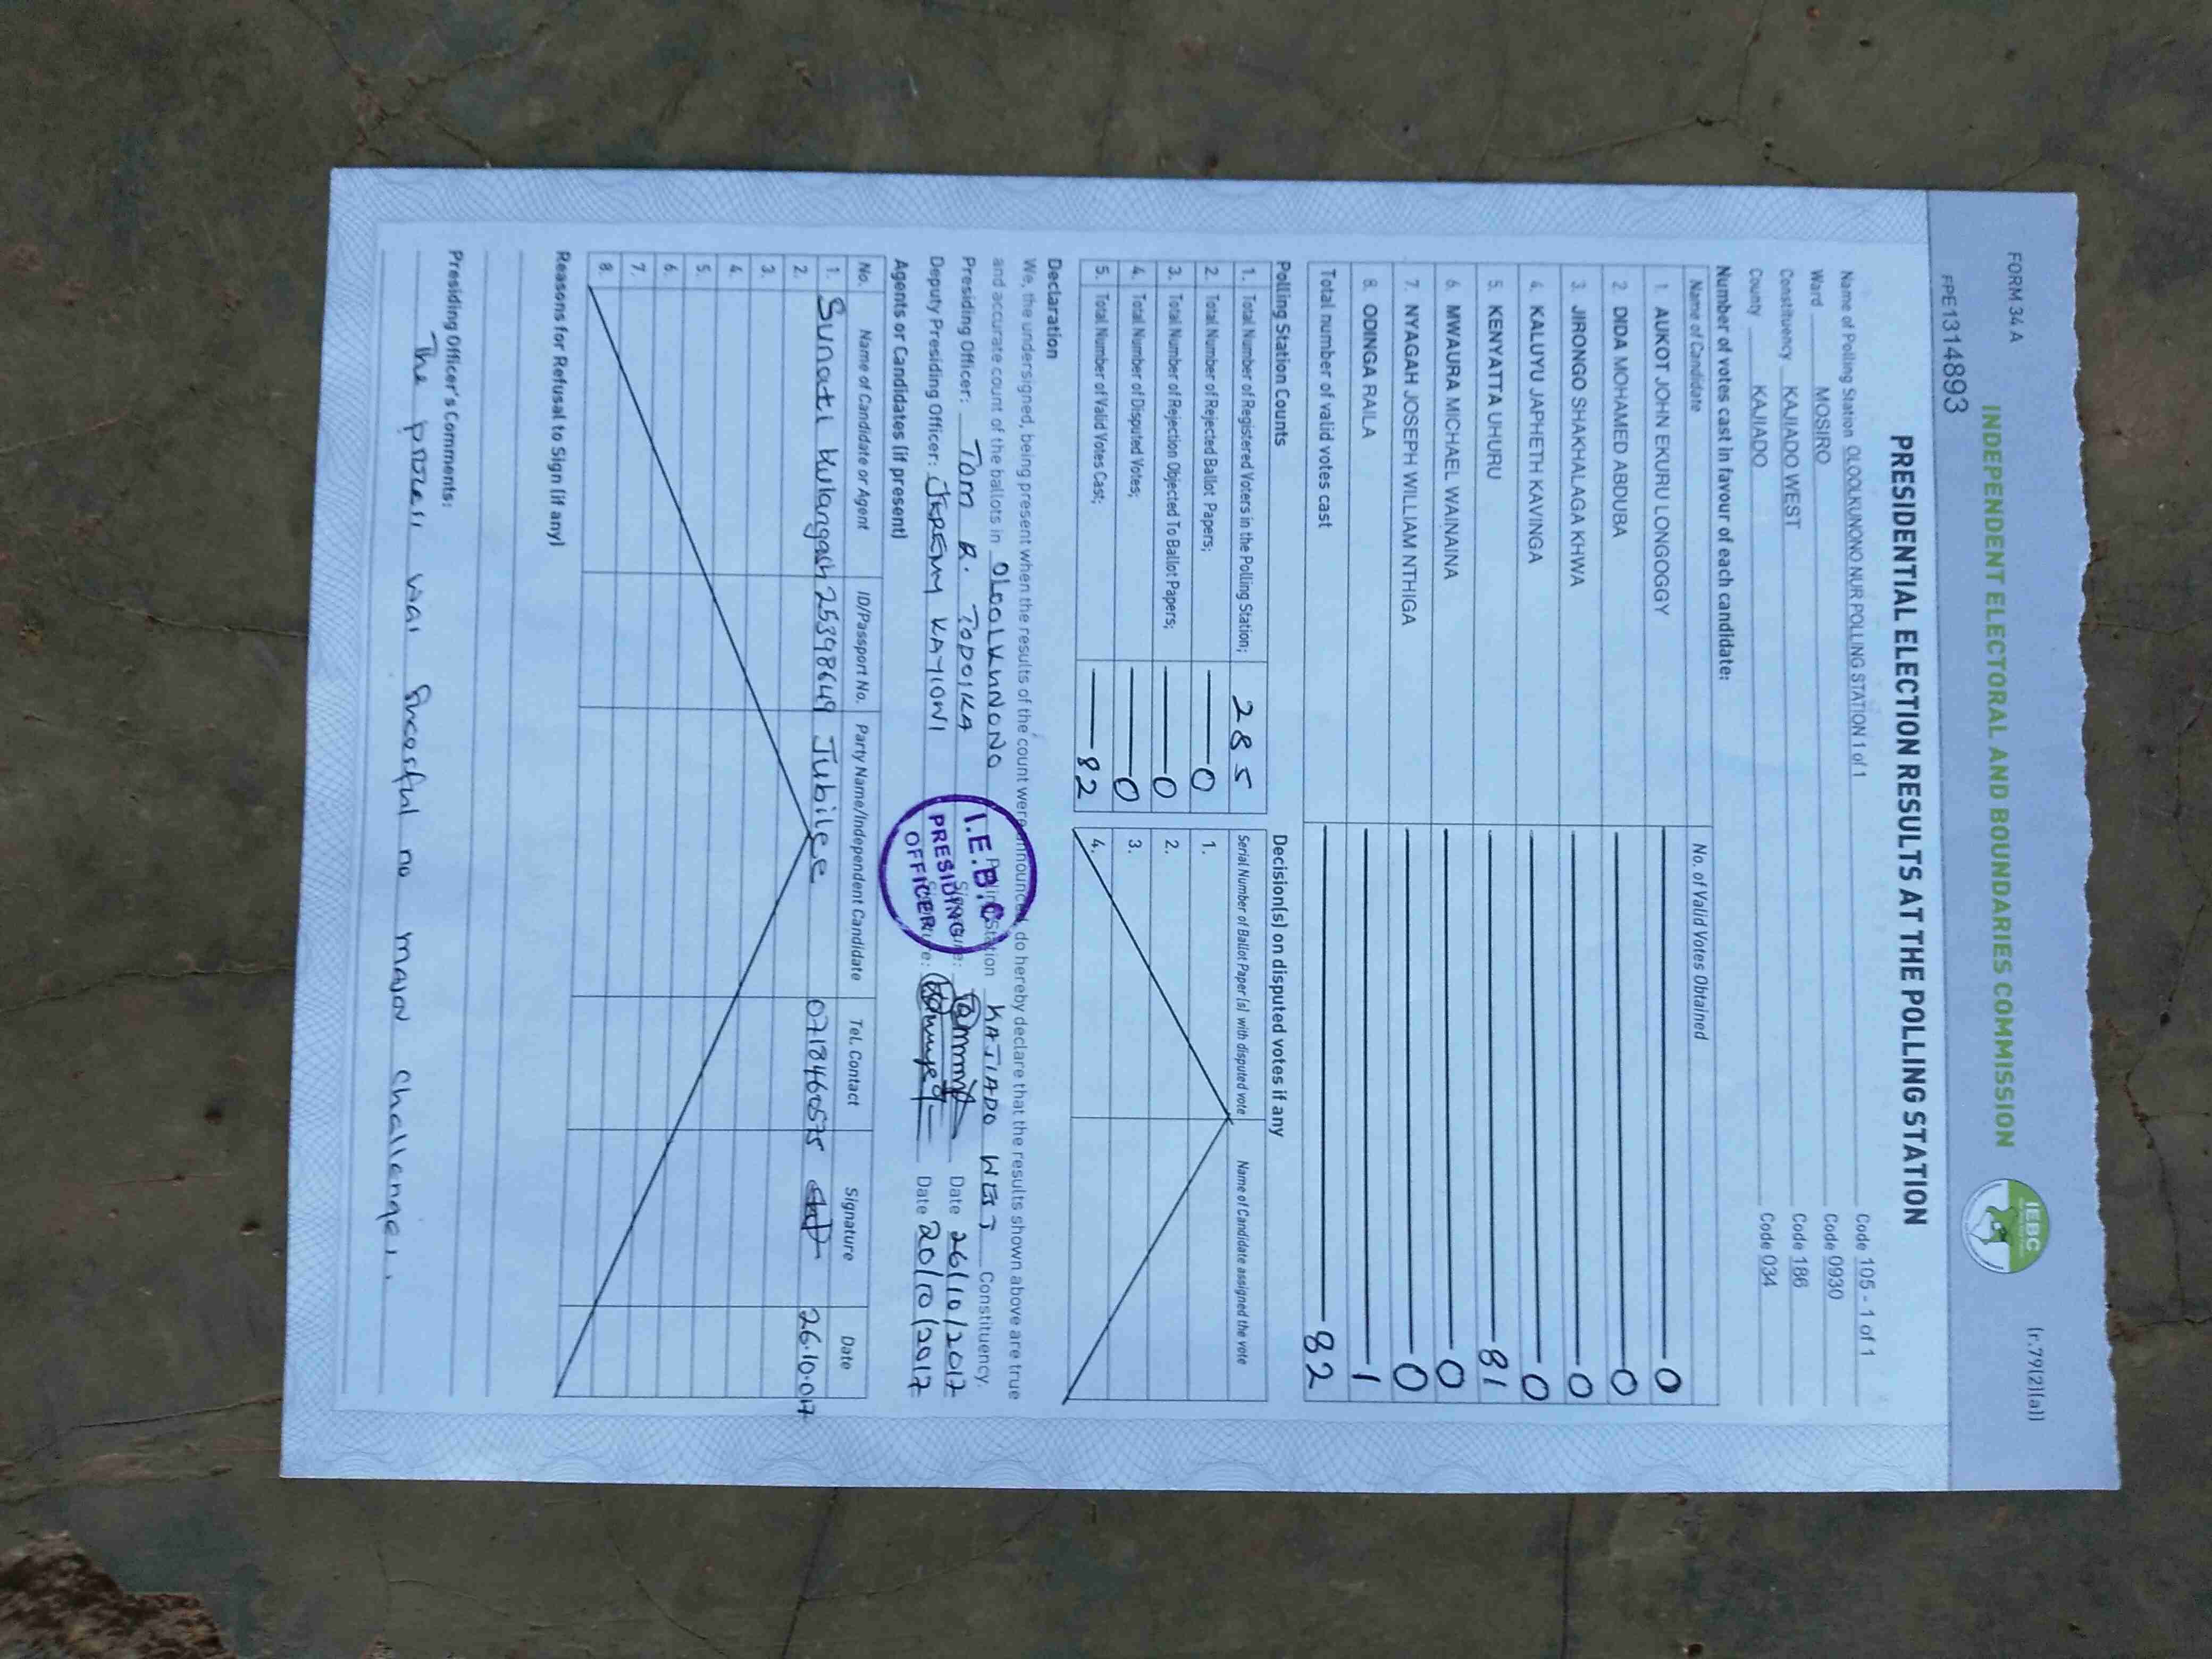 FORM 34 A
(r.79(2)(a))
INDEPENDENT ELECTORAL AND BOUNDARIES COMMISSION
IEBC
FPE1314893
PRESIDENTIAL ELECTION RESULTS AT THE POLLING STATION
Name of Polling Station OLOOLKUNONO NUR POLLING STATION 1 of 1 Code 105 - 1 of 1
Ward MOSIRO Code 0930
Constituency KAJIADO WEST Code 186
County KAJIADO Code 034
Number of votes cast in favour of each candidate:
Name of Candidate No. of Valid Votes Obtained
1. AUKOT JOHN EKURU LONGOGGY 0
2. DIDA MOHAMED ABDUBA 0
3. JIRONGO SHAKHALAGA KHWA 0
4. KALUYU JAPHETH KAVINGA 0
5. KENYATTA UHURU 81
6. MWAURA MICHAEL WAINAINA 0
7. NYAGAH JOSEPH WILLIAM NTHIGA 0
8. ODINGA RAILA 1
Total number of valid votes cast 82
Polling Station Counts
1. Total Number of Registered Voters in the Polling Station; 285
2. Total Number of Rejected Ballot Papers; 0
3. Total Number of Rejection Objected To Ballot Papers; 0
4. Total Number of Disputed Votes; 0
5. Total Number of Valid Votes Cast; 82
Decision(s) on disputed votes if any
Serial Number of Ballot Paper (s) with disputed vote Name of Candidate assigned the vote
1.
2.
3.
4.
Declaration
We, the undersigned, being present when the results of the count were announced, do hereby declare that the results shown above are true
and accurate count of the ballots in OLOOLKUNONO Polling Station KAJIADO WEST Constituency.
Presiding Officer: TOM R. TOPOIKA Signature: Date 26/10/2017
Deputy Presiding Officer: JEREMY KATIONI Signature: Date 20/10/2017
I.E.B.C
PRESIDING
OFFICER
Agents or Candidates (if present)
No. Name of Candidate or Agent ID/Passport No. Party Name/Independent Candidate Tel. Contact Signature Date
1. Sunati 25398649 Jubilee 0718460575 26.10.017
2.
3.
4.
5.
6.
7.
8.
Reasons for Refusal to Sign (if any)
Presiding Officer's Comments:
The process was sucessful no major challenges.